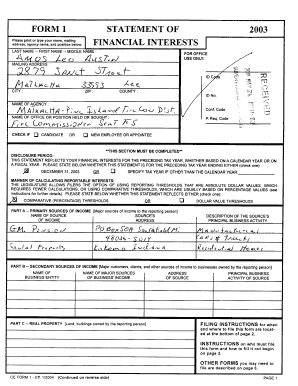 FORM 1 STATEMENT OF 2003
Please print or type your name, mailing
address, agency name, and position below:
FINANCIAL INTERESTS
LAST NAME -- FIRST NAME -- MIDDLE NAME:
FOR OFFICE
USE ONLY:
Amos Leo Austin
MAILING ADDRESS:
2879 Street
Matlacha 33993 Lee
CITY: ZIP: COUNTY:
ID Code
RECEIVED
ID No.
NAME OF AGENCY:
Matlacha-Pine Island Fire Dist.
Conf. Code
NAME OF OFFICE OR POSITION HELD OR SOUGHT:
P. Req. Code
Fire Commissioner Seat #5
CHECK IF CANDIDATE OR NEW EMPLOYEE OR APPOINTEE
**THIS SECTION MUST BE COMPLETED**
DISCLOSURE PERIOD:
THIS STATEMENT REFLECTS YOUR FINANCIAL INTERESTS FOR THE PRECEDING TAX YEAR, WHETHER BASED ON A CALENDAR YEAR OR ON
A FISCAL YEAR. PLEASE STATE BELOW WHETHER THIS STATEMENT IS FOR THE PRECEDING TAX YEAR ENDING EITHER (check one):
DECEMBER 31, 2003 OR SPECIFY TAX YEAR IF OTHER THAN THE CALENDAR YEAR:
MANNER OF CALCULATING REPORTABLE INTERESTS:
THE LEGISLATURE ALLOWS FILERS THE OPTION OF USING REPORTING THRESHOLDS THAT ARE ABSOLUTE DOLLAR VALUES, WHICH
REQUIRES FEWER CALCULATIONS, OR USING COMPARATIVE THRESHOLDS, WHICH ARE USUALLY BASED ON PERCENTAGE VALUES (see
instructions for further details). PLEASE STATE BELOW WHETHER THIS STATEMENT REFLECTS EITHER (check one):
COMPARATIVE (PERCENTAGE) THRESHOLDS OR DOLLAR VALUE THRESHOLDS
PART A -- PRIMARY SOURCES OF INCOME [Major sources of income to the reporting person]
NAME OF SOURCE OF INCOME SOURCE'S ADDRESS DESCRIPTION OF THE SOURCE'S PRINCIPAL BUSINESS ACTIVITY
G.M. Pension PO Box 5014 Southfield MI Manufacturing
48086-5014 Cars & Trucks
Rental Property Kokomo Indiana Residential Homes
PART B -- SECONDARY SOURCES OF INCOME [Major customers, clients, and other sources of income to businesses owned by the reporting person]
NAME OF BUSINESS ENTITY NAME OF MAJOR SOURCES OF BUSINESS' INCOME ADDRESS OF SOURCE PRINCIPAL BUSINESS ACTIVITY OF SOURCE
PART C -- REAL PROPERTY [Land, buildings owned by the reporting person]
FILING INSTRUCTIONS for when
and where to file this form are located
at the bottom of page 2.
INSTRUCTIONS on who must file
this form and how to fill it out begin
on page 3.
OTHER FORMS you may need to
file are described on page 6.
CE FORM 1 - Eff. 1/2004 (Continued on reverse side) PAGE 1